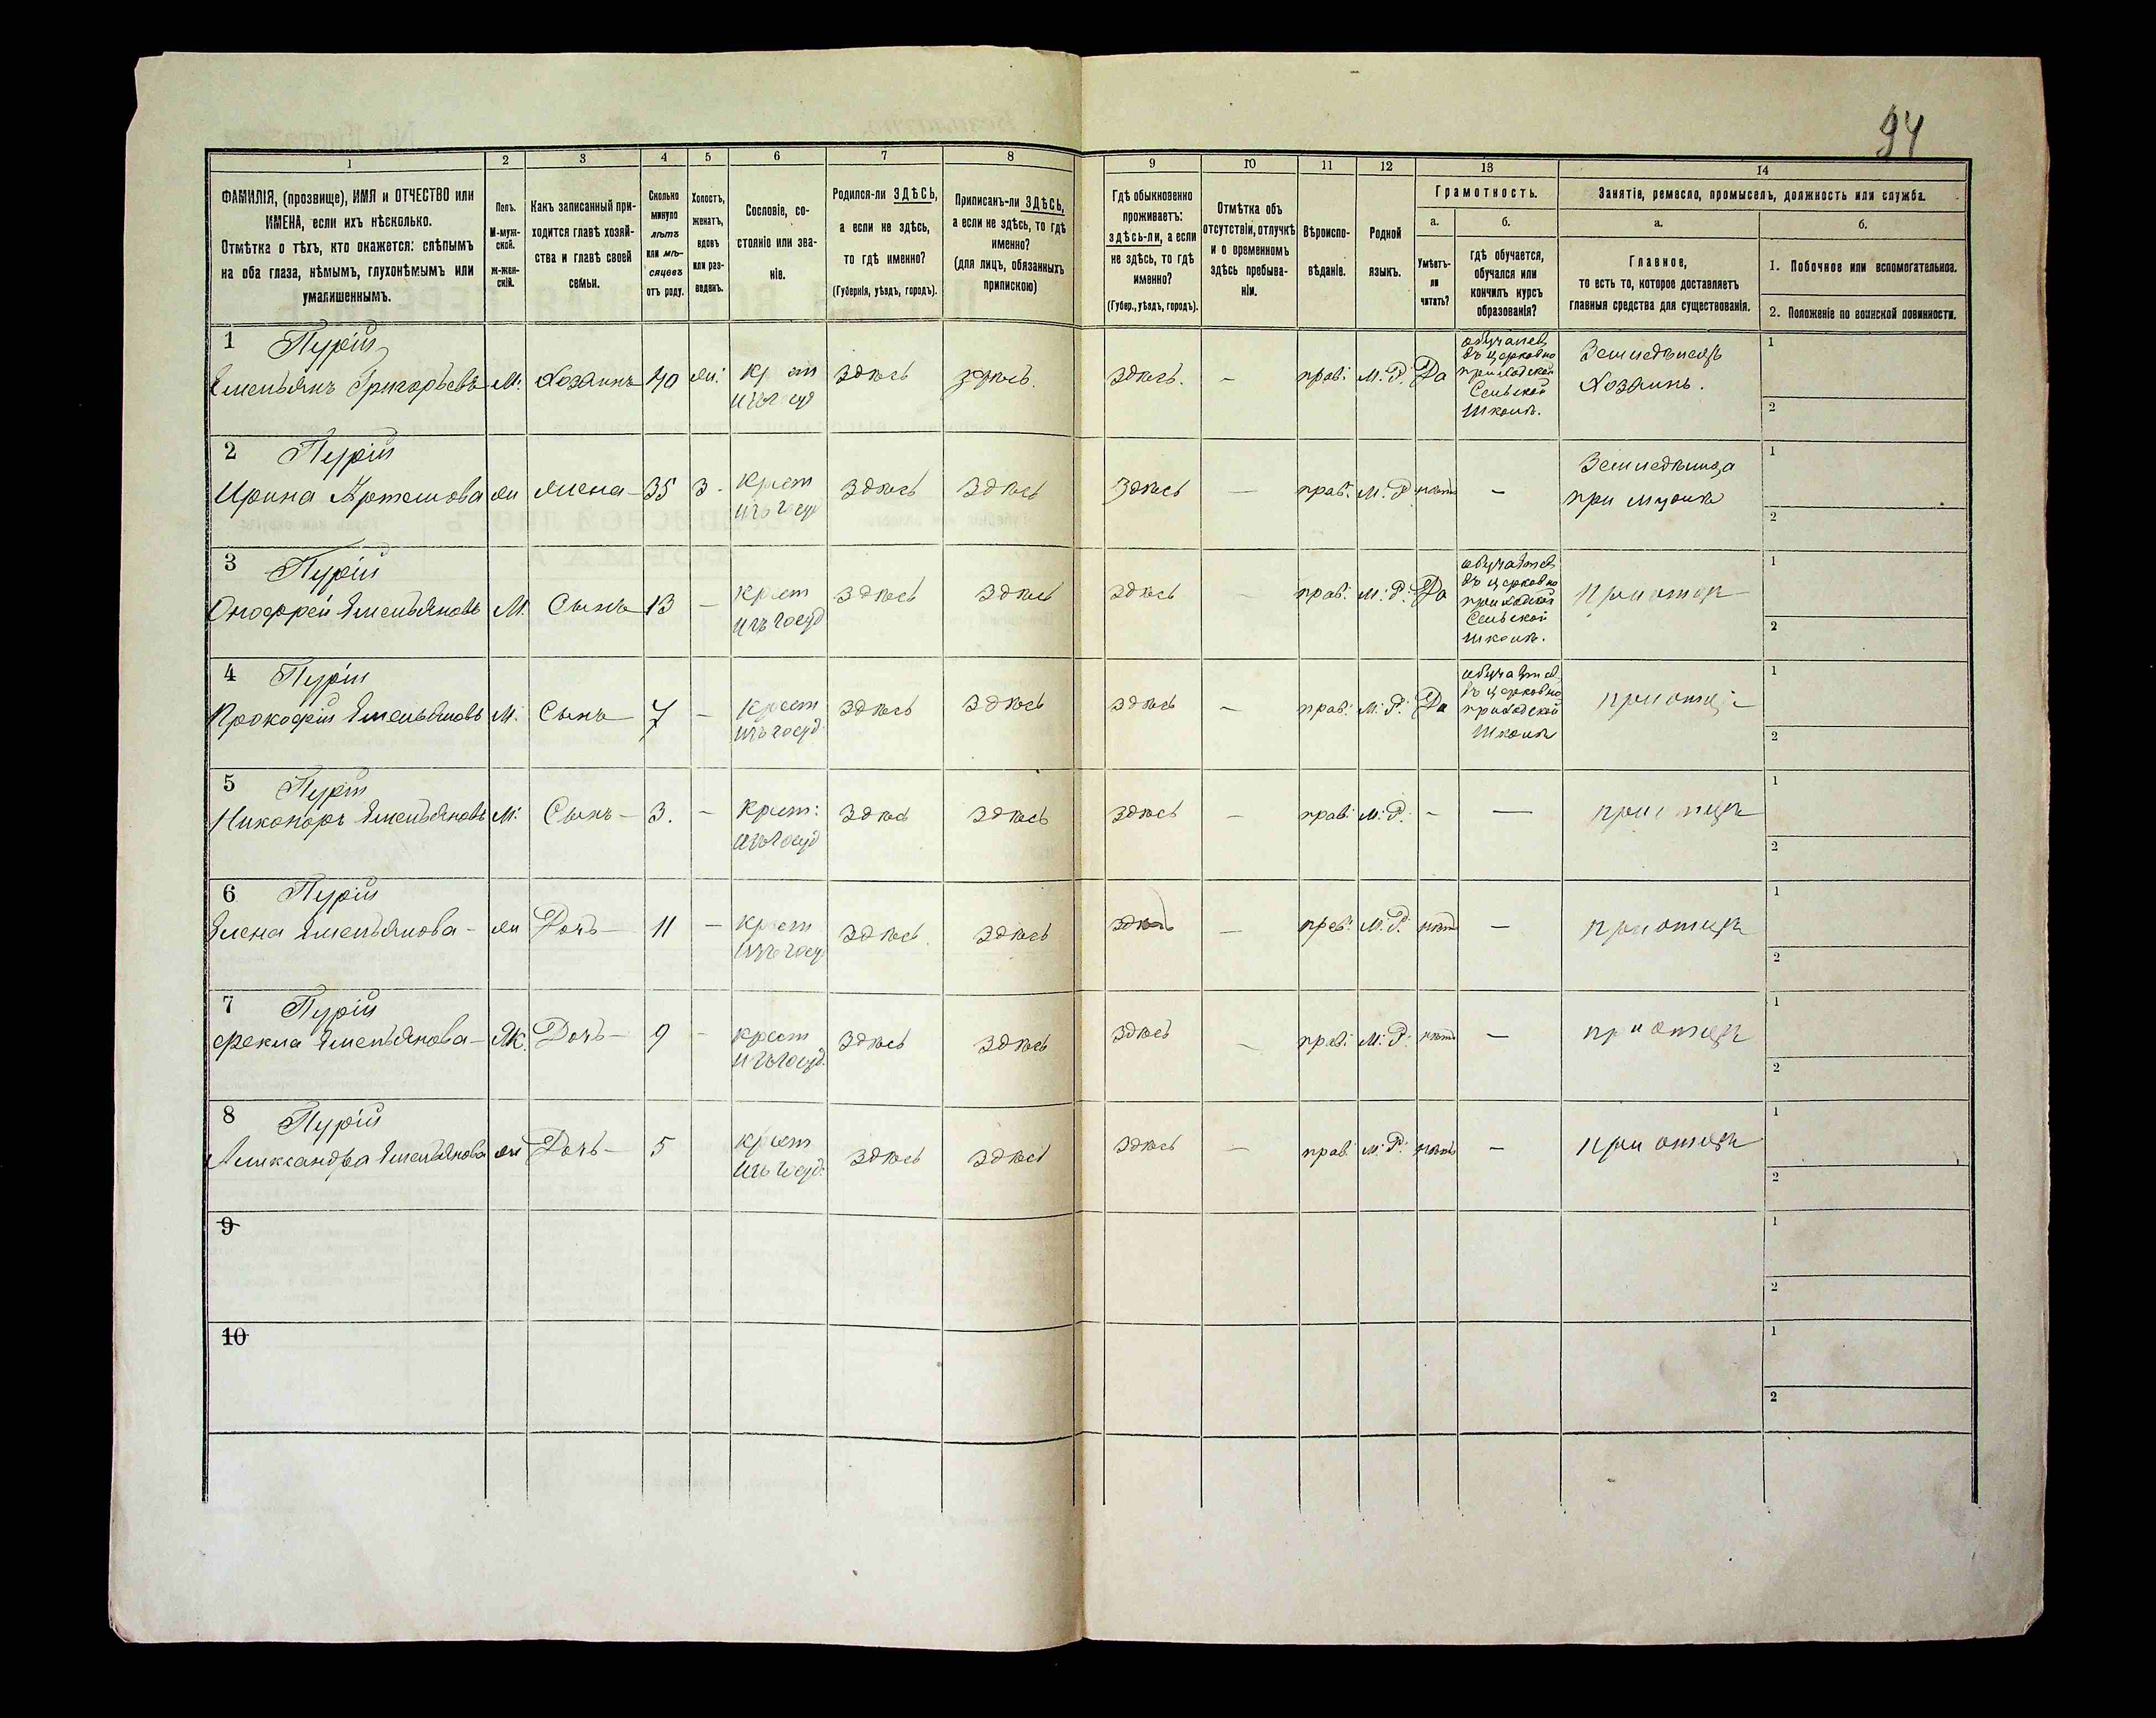 94
1 2 3 4 5 6 7 8 9 10 11 12 13 14
ФАМИЛІЯ, (прозвище), ИМЯ и ОТЧЕСТВО или
ИМЕНА, если ихъ нѣсколько.
Отмѣтка о тѣхъ, кто окажется: слѣпымъ
на оба глаза, нѣмымъ, глухонѣмымъ или
умалишеннымъ.
Полъ.
М-муж-
ской.
ж-жен-
скій.
Какъ записанный при-
ходится главѣ хозяй-
ства и главѣ своей
семьи.
Сколько
минуло
лѣтъ
или мѣ-
сяцевъ
отъ роду.
Холостъ,
женатъ,
вдовъ
или раз-
веденъ.
Сословіе, со-
стояніе или зва-
ніе.
Родился-ли ЗДѢСЬ,
а если не здѣсь,
то гдѣ именно?
(Губернія, уѣздъ, городъ).
Приписанъ-ли ЗДѢСЬ,
а если не здѣсь, то гдѣ
именно?
(для лицъ, обязанныхъ
припискою)
Гдѣ обыкновенно
проживаетъ:
здѣсь-ли, а если
не здѣсь, то гдѣ
именно?
(Губер., уѣздъ, городъ).
Отмѣтка объ
отсутствіи, отлучкѣ
и о временномъ
здѣсь пребыва-
ніи.
Вѣроиспо-
вѣданіе.
Родной
языкъ.
Грамотность.
а.
Умѣетъ-
ли
читать?
б.
гдѣ обучается,
обучался или
кончилъ курсъ
образованія?
Занятіе, ремесло, промыселъ, должность или служба.
а.
Главное,
то есть то, которое доставляетъ
главныя средства для существованія.
б.
1. Побочное или вспомогательное.
2. Положеніе по воинской повинности.
1 Пурій
Емельянъ Григорьевъ М. Хозяинъ 40 здѣсь здѣсь здѣсь. – прав. М.Р. Да
въ церковно
приходской
Сельской
школѣ.
Земледѣлецъ
Хозяинъ.
1
2
2 Пурій
Ирина Артемова жена 35 З - Крест
изъ госуд
здѣсь здѣсь здѣсь – прав. М.Р нѣтъ –
при мужѣ
1
2
3 Пурій
Онофрей Емельяновъ М. Сынъ 13 – Крест
изъ госуд
здѣсь здѣсь здѣсь – прав. М.Р. Да
въ церковно
приходской
Сельской
школѣ.
при отцѣ
1
2
4 Пурій
Прокофій Емельяновъ М. Сынъ 7 – Крест
изъ госуд
здѣсь здѣсь здѣсь – прав. М.Р. Да
въ церковно
приходской
школѣ
при отцѣ
1
2
5 Пурій
Никоноръ Емельяновъ М. Сынъ – 3. – Крест:
изъ госуд
здѣсь здѣсь здѣсь – прав. М.Р. – — при отцѣ
1
2
6 Пурій
Елена Емельянова – Дочь – 11 – Крест
изъ госуд
здѣсь здѣсь здѣсь – прав. М.Р. нѣтъ – при отцѣ
1
2
7 Пурій
Фекла Емельянова – Ж. Дочь – 9 – крест
изъ госуд.
здѣсь здѣсь здѣсь – прав. М.Р. нѣтъ – при отцѣ
1
2
8 Пурій
Александра Емельянова Дочь – 5 крест
изъ госуд.
здѣсь здѣсь здѣсь – прав М.Р. нѣтъ – при отцѣ
1
2
9
1
2
10
1
2